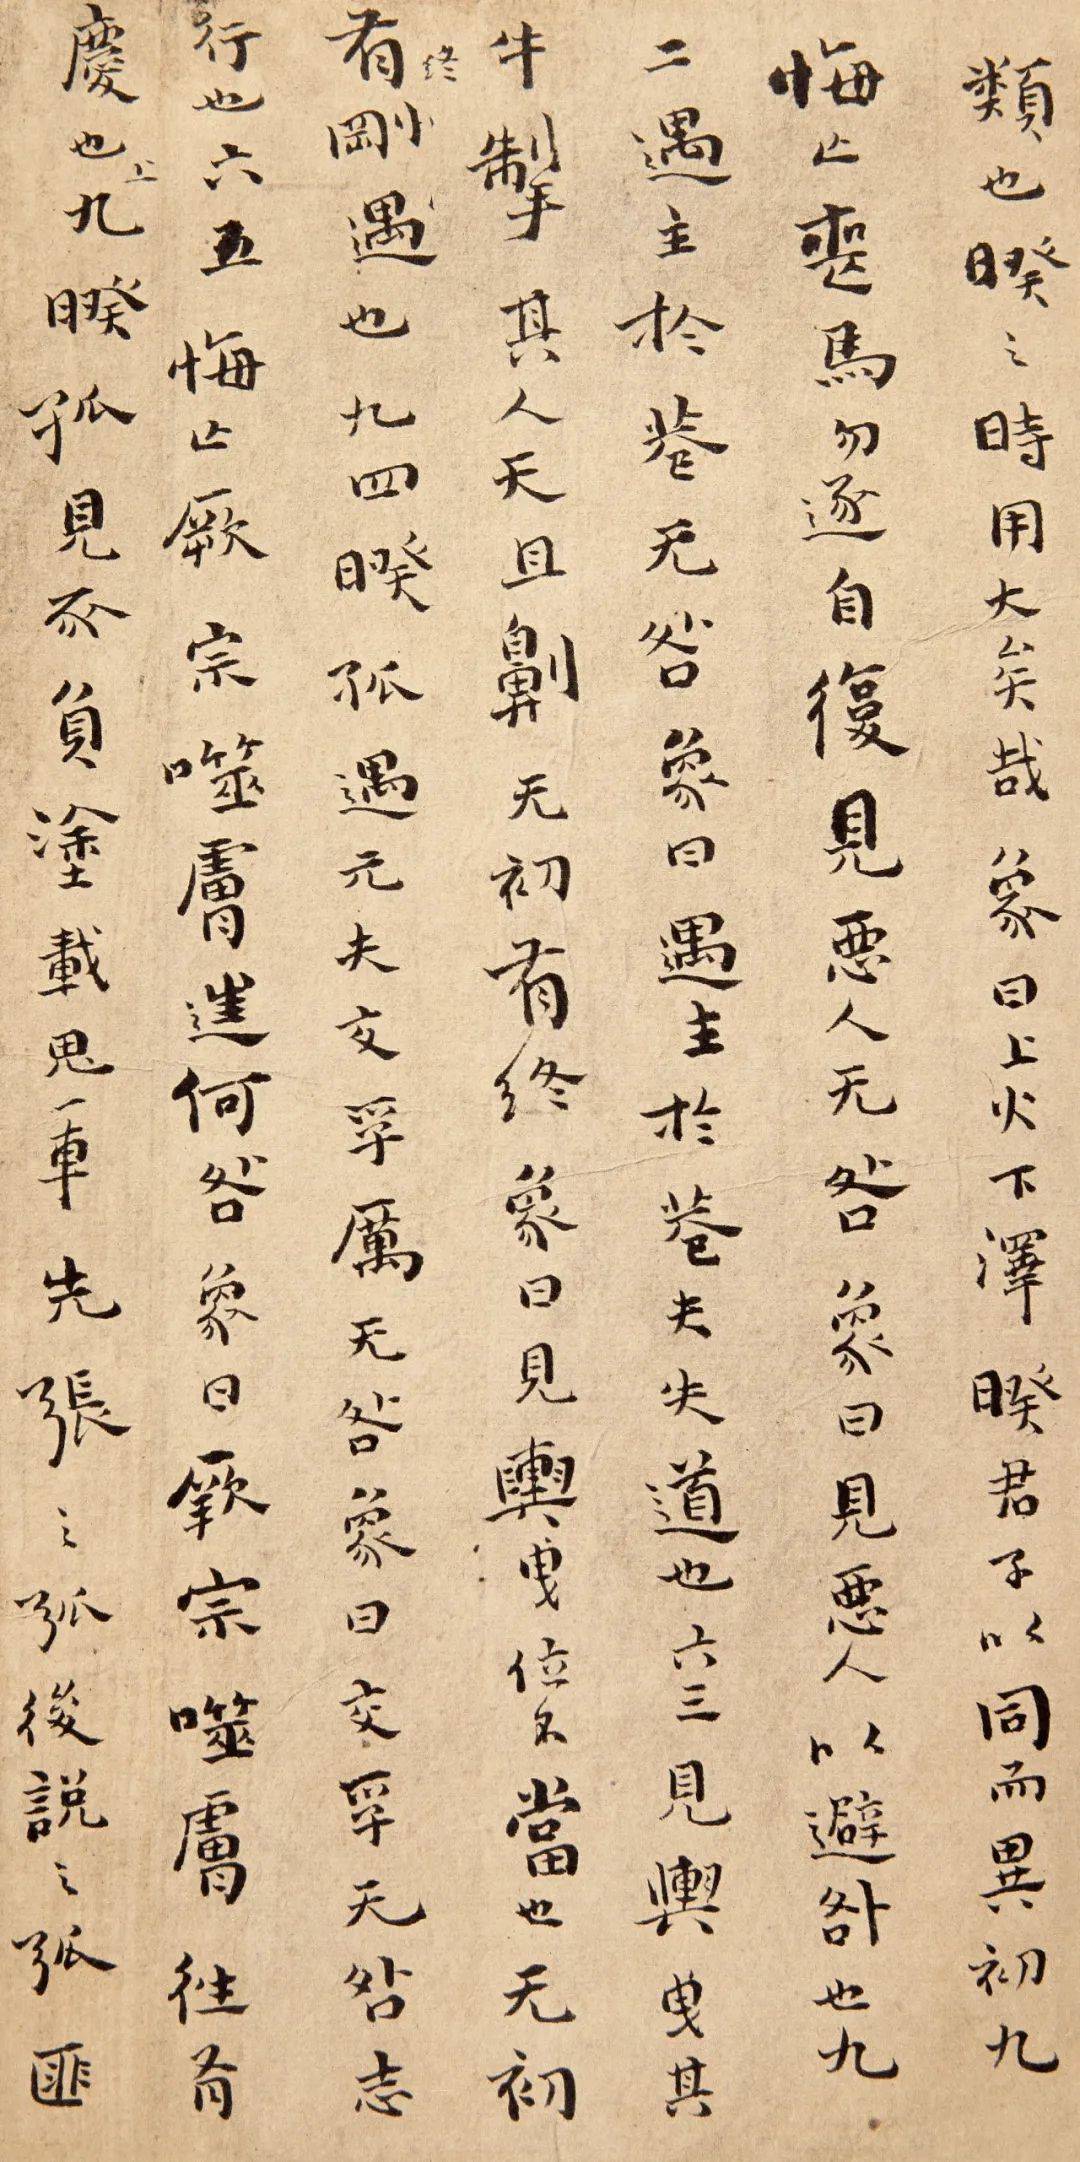 類也暌之時用大矣哉象曰上火下澤暌君子以同而異初九
悔亡喪馬勿逐自復見惡人无咎象曰見惡人以避咎也九
二遇主於巷无咎象曰遇主於巷未失道也六三見輿曳其
牛掣其人天且劓无初有終象曰見輿曳位不當也无初
有終剛遇也九四暌孤遇元夫交孚厲无咎象曰交孚无咎志
行也六五悔亡厥宗噬膚進何咎象曰厥宗噬膚往有
慶也上九暌孤見豕負塗載鬼一車先張之弧後說之弧匪